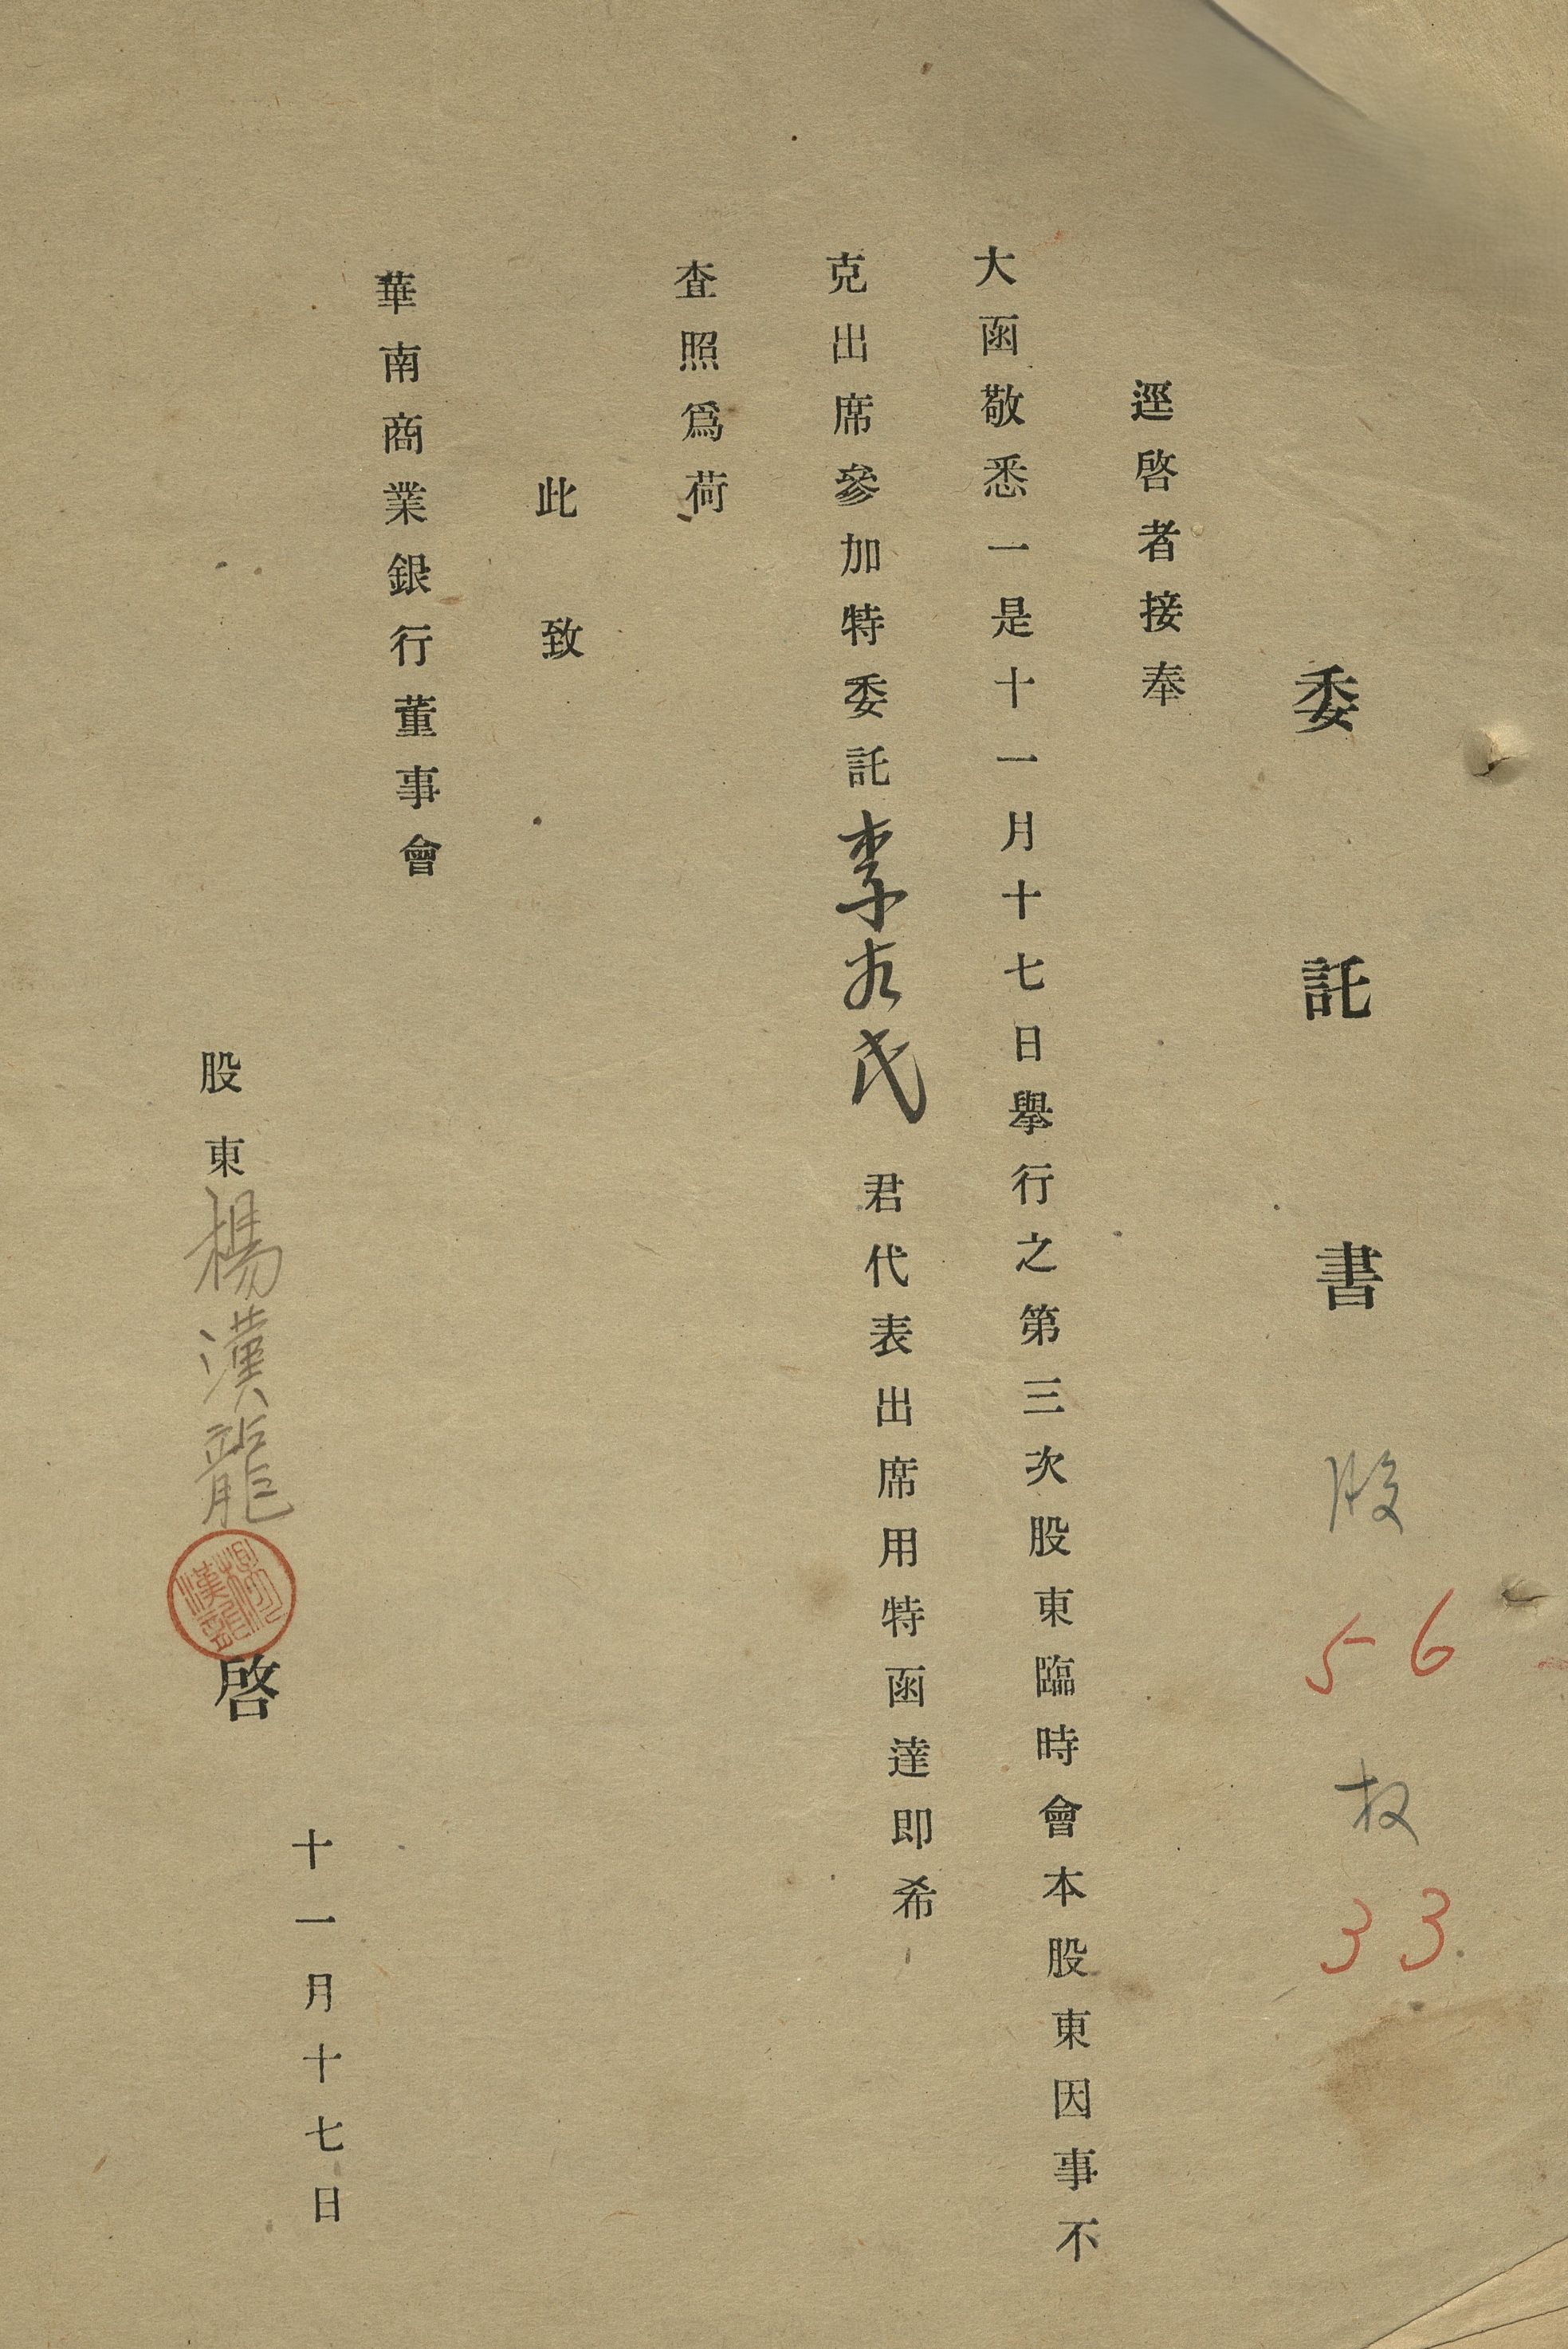 委託書 股 56 权 33
逕啓者接奉
大函敬悉一是十一月十七日舉行之第三次股東臨時會本股東因事不
克出席參加特委託李友民君代表出席用特函達即希
查照爲荷
此致
華南商業銀行董事會
十一月十七日
股東楊漢龍啓
楊漢龍